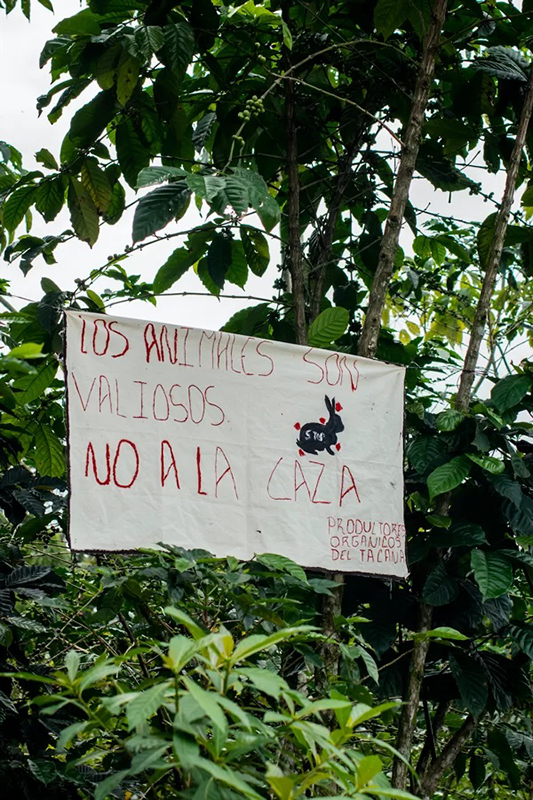 LOS ANIMALES SON
VALIOSOS
STOP
NO A LA CAZA
PRODUCTORES
ORGANICOS
DEL TACANA